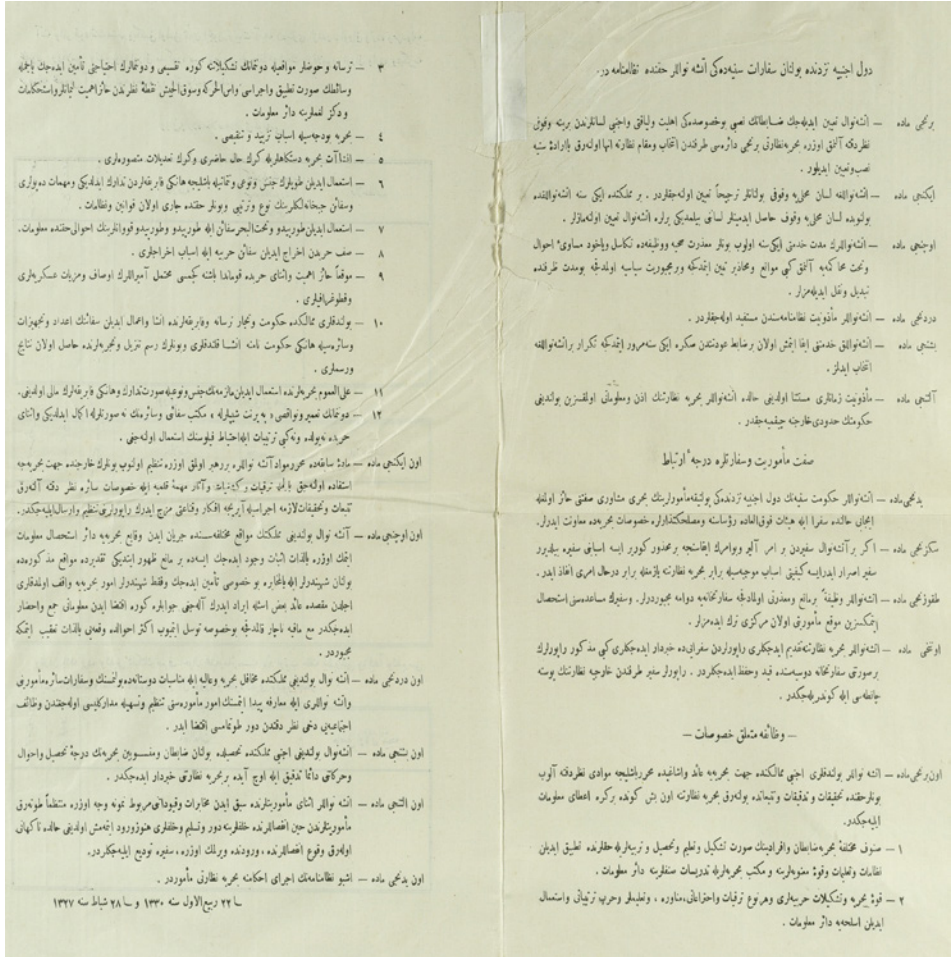 دول اجنبیه نزدنده بولنان سفارات سنیه‌ده‌کی آتشه نواللر حقنده نظامنامه در.
برنجی ماده — آتشه‌نوال تعیین ایدیله‌جك ضابطانك نصبی بوخصوصده‌کی اهلیت ولیاقتی واجنبی لسانلرندن برینه وقوفی
نظردقته آلنمق اوزره بحریه نظارتی برنجی دائره‌سی طرفندن انتخاب ومقام نظارته انها اوله‌رق باارادۀ سنیه
نصب‌وتعیین ایدیلور.
ایکنجی ماده — آتشه‌نواللغه لسان محلی‌یه وقوفی بولنانلر ترجیحاً تعیین اوله‌جقلردر. بر مملکتده ایکی سنه آتشه‌نواللقده
بولنوبده لسان محلی‌یه وقوف حاصل ایدمینلر لسانی بیلمدیکی یرلره آتشه‌نوال تعیین اوله‌مازلر.
اوچنجی ماده — آتشه‌نواللرك مدت خدمتی ایکی‌سنه اولوب بونلر معذرت صحیه ووظیفه‌ده تکاسل ویاخود مساوئ احوال
وتحت محاکمه‌یه آلنمق کبی موانع ومحاذیر تبین ایتمدکجه ومجبوریت سیاسیه اولمدقجه بومدت ظرفنده
تبدیل ونقل ایدیله‌مزلر.
دردنجی ماده — آتشه‌نواللر مأذونیت نظامنامه‌سندن مستفید اوله‌جقلردر.
بشنجی ماده — آتشه‌نواللق خدمتنی ایفا ایتمش اولان برضابط عودتندن صکره ایکی سنه‌مرور ایتمدکجه تکرار برآتشه‌نواللغه
انتخاب ایدلمز.
آلتنجی ماده — مأذونیت زمانلری مستثنا اولدیغی حالده آتشه‌نواللر بحریه نظارتنك اذن ومعلوماتی اولمقسزین بولندیغی
حکومتك حدودی‌خارجنه چیقمیه‌جقدر.
صفت مأموریت وسفارتلره درجۀ ارتباط
یدنجی‌ماده — آتشه‌نواللر حکومت سنیه‌نك دول اجنبیه نزدنده‌کی پولتیقه‌مأمورلرینك بحری مشاوری صفتنی حائز اولمغله
ایجابی حالده سفرا ایله هیئات فوق‌العاده رؤساسنه ومصلحتگذارلره خصوصات بحریه‌ده معاونت ایدرلر.
سکزنجی ماده — اکر برآتشه‌نوال سفیردن بر امر آلیر وبوامرك ایفاسنجه برمحذور کوریر ایسه اسبابنی سفیره بیلدیرر
سفیر اصرار ایدرایسه کیفیتی اسباب موجبه‌سیله برابر بحریه نظارتنه یازمغله برابر درحال امری انفاذ ایدر.
طقوزنجی ماده — آتشه‌نواللر وظیفةً برمانع ومعذرتی اولمادقجه سفارتخانه‌یه دوامه مجبوردرلر. وسفیرك مساعده‌سنی استحصال
ایتمکسزین موقع مأموریتی اولان مرکزی ترك ایده‌مزلر.
اوننجی ماده — آتشه‌نواللر بحریه نظارتنه‌تقدیم ایده‌جکلری راپورلردن سفرانی‌ده خبردار ایده‌جکلری کبی مذکور راپورلرك
برصورتنی سفارتخانه دوسیه‌سنده قید وحفظ ایده‌جکلردر. راپورلر سفیر طرفندن خارجیه نظارتنك پوسته
چانطه‌سی ایله کوندریله‌جکدر.
— وظائفه متعلق خصوصات —
اون‌برنجی‌ماده — آتشه نواللر بولندقلری اجنبی ممالکنده جهت بحریه‌یه عائد واشاغیده محررباشلیجه موادی نظردقته آلوب
بونلرحقنده تحقیقات وتدقیقات وتتبعاتده بوله‌رق بحریه نظارتنه اون بش کونده برکره اعطای معلومات
ایلیه‌جکدر.
١ — صنوف مختلفۀ بحریه‌ضابطان وافرادینك صورت تشکیل وتعلیم وتحصیل و تربیه‌لریله‌حقلرنده تطبیق ایدیلن
نظامات وتعلیمات وقوۀ معنویه‌لرینه ومکتب بحریه‌لریله تدریسات صنفلرینه دائر معلومات.
٢ — قوۀ بحریه وتشکیلات حربیه‌لری وهرنوع ترقیات واختراعاتی،مناوره، وتعلیملر وحرب ترتیباتی واستعمال
ایدیلن اسلحه‌یه دائر معلومات.
٣ — ترسانه وحوضلر مواقعیله دوننمانك تشکیلاتنه کوره تقسیمی ودوننمالرك احتیاجنی تأمین ایده‌جك بالجمله
وسائطك صورت تطبیق واجراسی واس‌الحرکه‌وسوق‌الجیش نقطۀ نظرندن حائزاهمیت لیمانلرواستحکامات
ودکز لغملرینه دائر معلومات.
٤ — بحریه بودجه‌سیله اسباب تزیید وتنقیصی.
٥ — انشاآت بحریه دستکاهلریله کرك حال حاضری وکرك تعدیلات متصوره‌لری.
٦ — استعمال ایدیلن طوپلرك جنس ونوعی وتماتیله باشلیجه هانکی فابریقه‌لردن تدارك ایدلدیکی ومهمات ده‌پولری
وسفائن جبخانه‌لکلرینك نوع وترتیبی وبونلر حقنده جاری اولان قوانین ونظامات.
٧ — استعمال ایدیلن‌طورپیدو وتحت‌البحرسفائن ایله طورپیدو وطورپیدوقووانلرینك احوالی‌حقنده معلومات.
٨ — صف حربدن اخراج ایدیلن سفائن حربیه ایله اسباب اخراجلری.
٩ — موقعاً حائز اهمیت واثنای حربده قوماندا باشنه کچمسی محتمل آمیراللرك اوصاف ومزیات عسکریه‌لری
وفطوغرافیلری.
١٠ — بولندقلری ممالکده حکومت وتجار ترسانه وفابریقه‌لرنده انشا واعمال ایدیلن سفائنك اعداد وتجهیزات
وسائره‌سیله هانکی حکومت نامنه انشا قلندقلری وبونلرك رسم تنزیل وتجربه‌لرنده حاصل اولان نتایج
ورسملری.
١١ — علی‌العموم بحریه‌لرنده استعمال ایدیلن‌مالزمه‌نك‌جنس‌ونوعیله‌صورت‌تدارك وهانکی فابریقه‌لرك مالی اولدیغی.
١٢ — دوننمانك تعمیر ونواقصی « په‌رنت شیپ‌لر » مکتب سفائنی وسائره‌نك نه صورتلرله اکمال ایدلدیکی واثنای
حربده نه‌یولده ونه‌کبی ترتیبات ایله‌احتیاط فیلوسنك استعمال اوله‌جغی.
اون ایکنجی ماده — مادۀ سابقه‌ده محررمواد آتشه نواللره بررهبر اولمق اوزره تنظیم اولنوب بونلرك خارجنده جهت بحریه‌جه
استفاده اوله‌جق بالجمله ترقیات وکشفیات وآثار مهمۀ قلمیه ایله خصوصات سائره نظر دقته آله‌رق
تتبعات وتحقیقات‌لازمه اجراسیله آیریجه افکار وقناعتنی مزج ایدرك راپورلرینی‌تنظیم وارسال‌ایلیه‌جکدر.
اون اوچنجی‌ماده — آتشه نوال بولندیغی مملکتك مواقع مختلفه‌سنده جریان ایدن وقایع بحریه‌یه دائر استحصال معلومات
ایتمك اوزره بالذات اثبات وجود ایده‌جك ایسه‌ده بر مانع ظهور ایتدیکی تقدیرده مواقع مذکوره‌ده
بولنان شهبندرلر ایله‌بالمخابره بو خصوصی تأمین ایده‌جك وفقط شهبندرلر امور بحریه‌یه واقف اولمدقلری
اجلدن مقصده عائد بعض اسئله ایراد ایدرك آله‌جغی جوابلره کوره اقتضا ایدن معلوماتی جمع واحضار
ایده‌جکدر مع مافیه ناچار قالمدقجه بوخصوصه توسل ایتمیوب اکثر احوالده وقعه‌یی بالذات تعقیب ایتمکه
مجبوردر.
اون دردنجی ماده — آتشه نوال بولندیغی مملکتده محافل بحریه وعالیه ایله مناسبات دوستانه‌ده‌بولنمسنك وسفارات‌سائره‌مأمورینی
وآتشه نواللری ایله معارفه پیدا ایتمسنك امور مأموره‌سنی تنظیم وتسهیله مدارکلیسی اوله‌جغندن وظائف
اجتماعیه‌یی دخی نظر دقتدن دور طوتمامسی اقتضا ایدر.
اون بشنجی ماده — آتشه‌نوال بولندیغی اجنبی مملکتده تحصیلده بولنان ضابطان ومنسوبین بحریه‌نك درجۀ تحصیل واحوال
وحرکاتنی دائما تدقیق ایله اوچ آیده بربحریه نظارتنی خبردار ایده‌جکدر.
اون التنجی ماده — آتشه نواللر اثنای مأموریتلرنده سبق ایدن مخابرات وقیوداتی‌مربوط نمونه وجه اوزره منتظماً طوته‌رق
مأموریتلرندن حین انفصاللرنده خلفلرینه دور وتسلیم وخلفلری هنوزورود ایتمه‌مش اولدیغی حالده ناکهانی
اوله‌رق وقوع انفصاللرنده، ورودنده ویرلمك اوزره، سفیره تودیع ایلیه‌جکلردر.
اون یدنجی ماده — اشبو نظامنامه‌نك اجرای احکامنه بحریه نظارتی مأموردر.
٢٢ ربیع‌الاول سنه ١٣٣٠ و ٢٨ شباط سنه ١٣٢٧